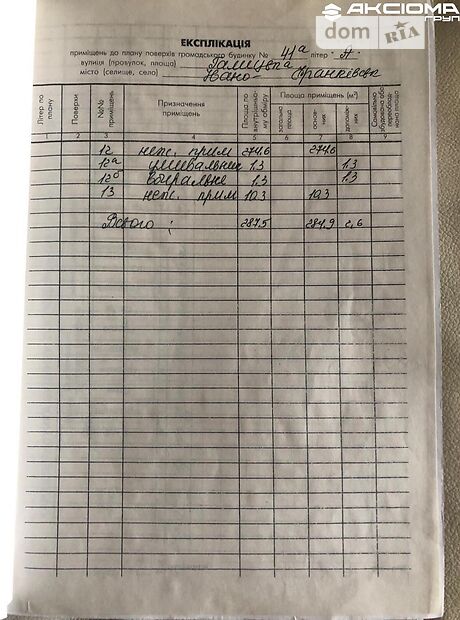 АКСІОМА
ГРУП
dom RIA
ЕКСПЛІКАЦІЯ
приміщень до плану поверхів громадського будинку № 41а літер "А"
вулиця (провулок, площа) Галицька
місто (селище, село) Івано-Франківськ
Літер по плану
Поверхи
№№ приміщень
Призначення приміщень
Площа по внутрішньому обміру
Площа приміщень (м²)
загальна площа
основних
допоміжних
Самовільно збудована або переобладнана площа
1 2 3 4 5 6 7 8 9
12 неж. прим 274,6 274,6
12а умивальник 1,3 1,3
12б вбиральня 1,3 1,3
13 неж. прим 10,3 10,3
Всього: 287,5 284,9 2,6